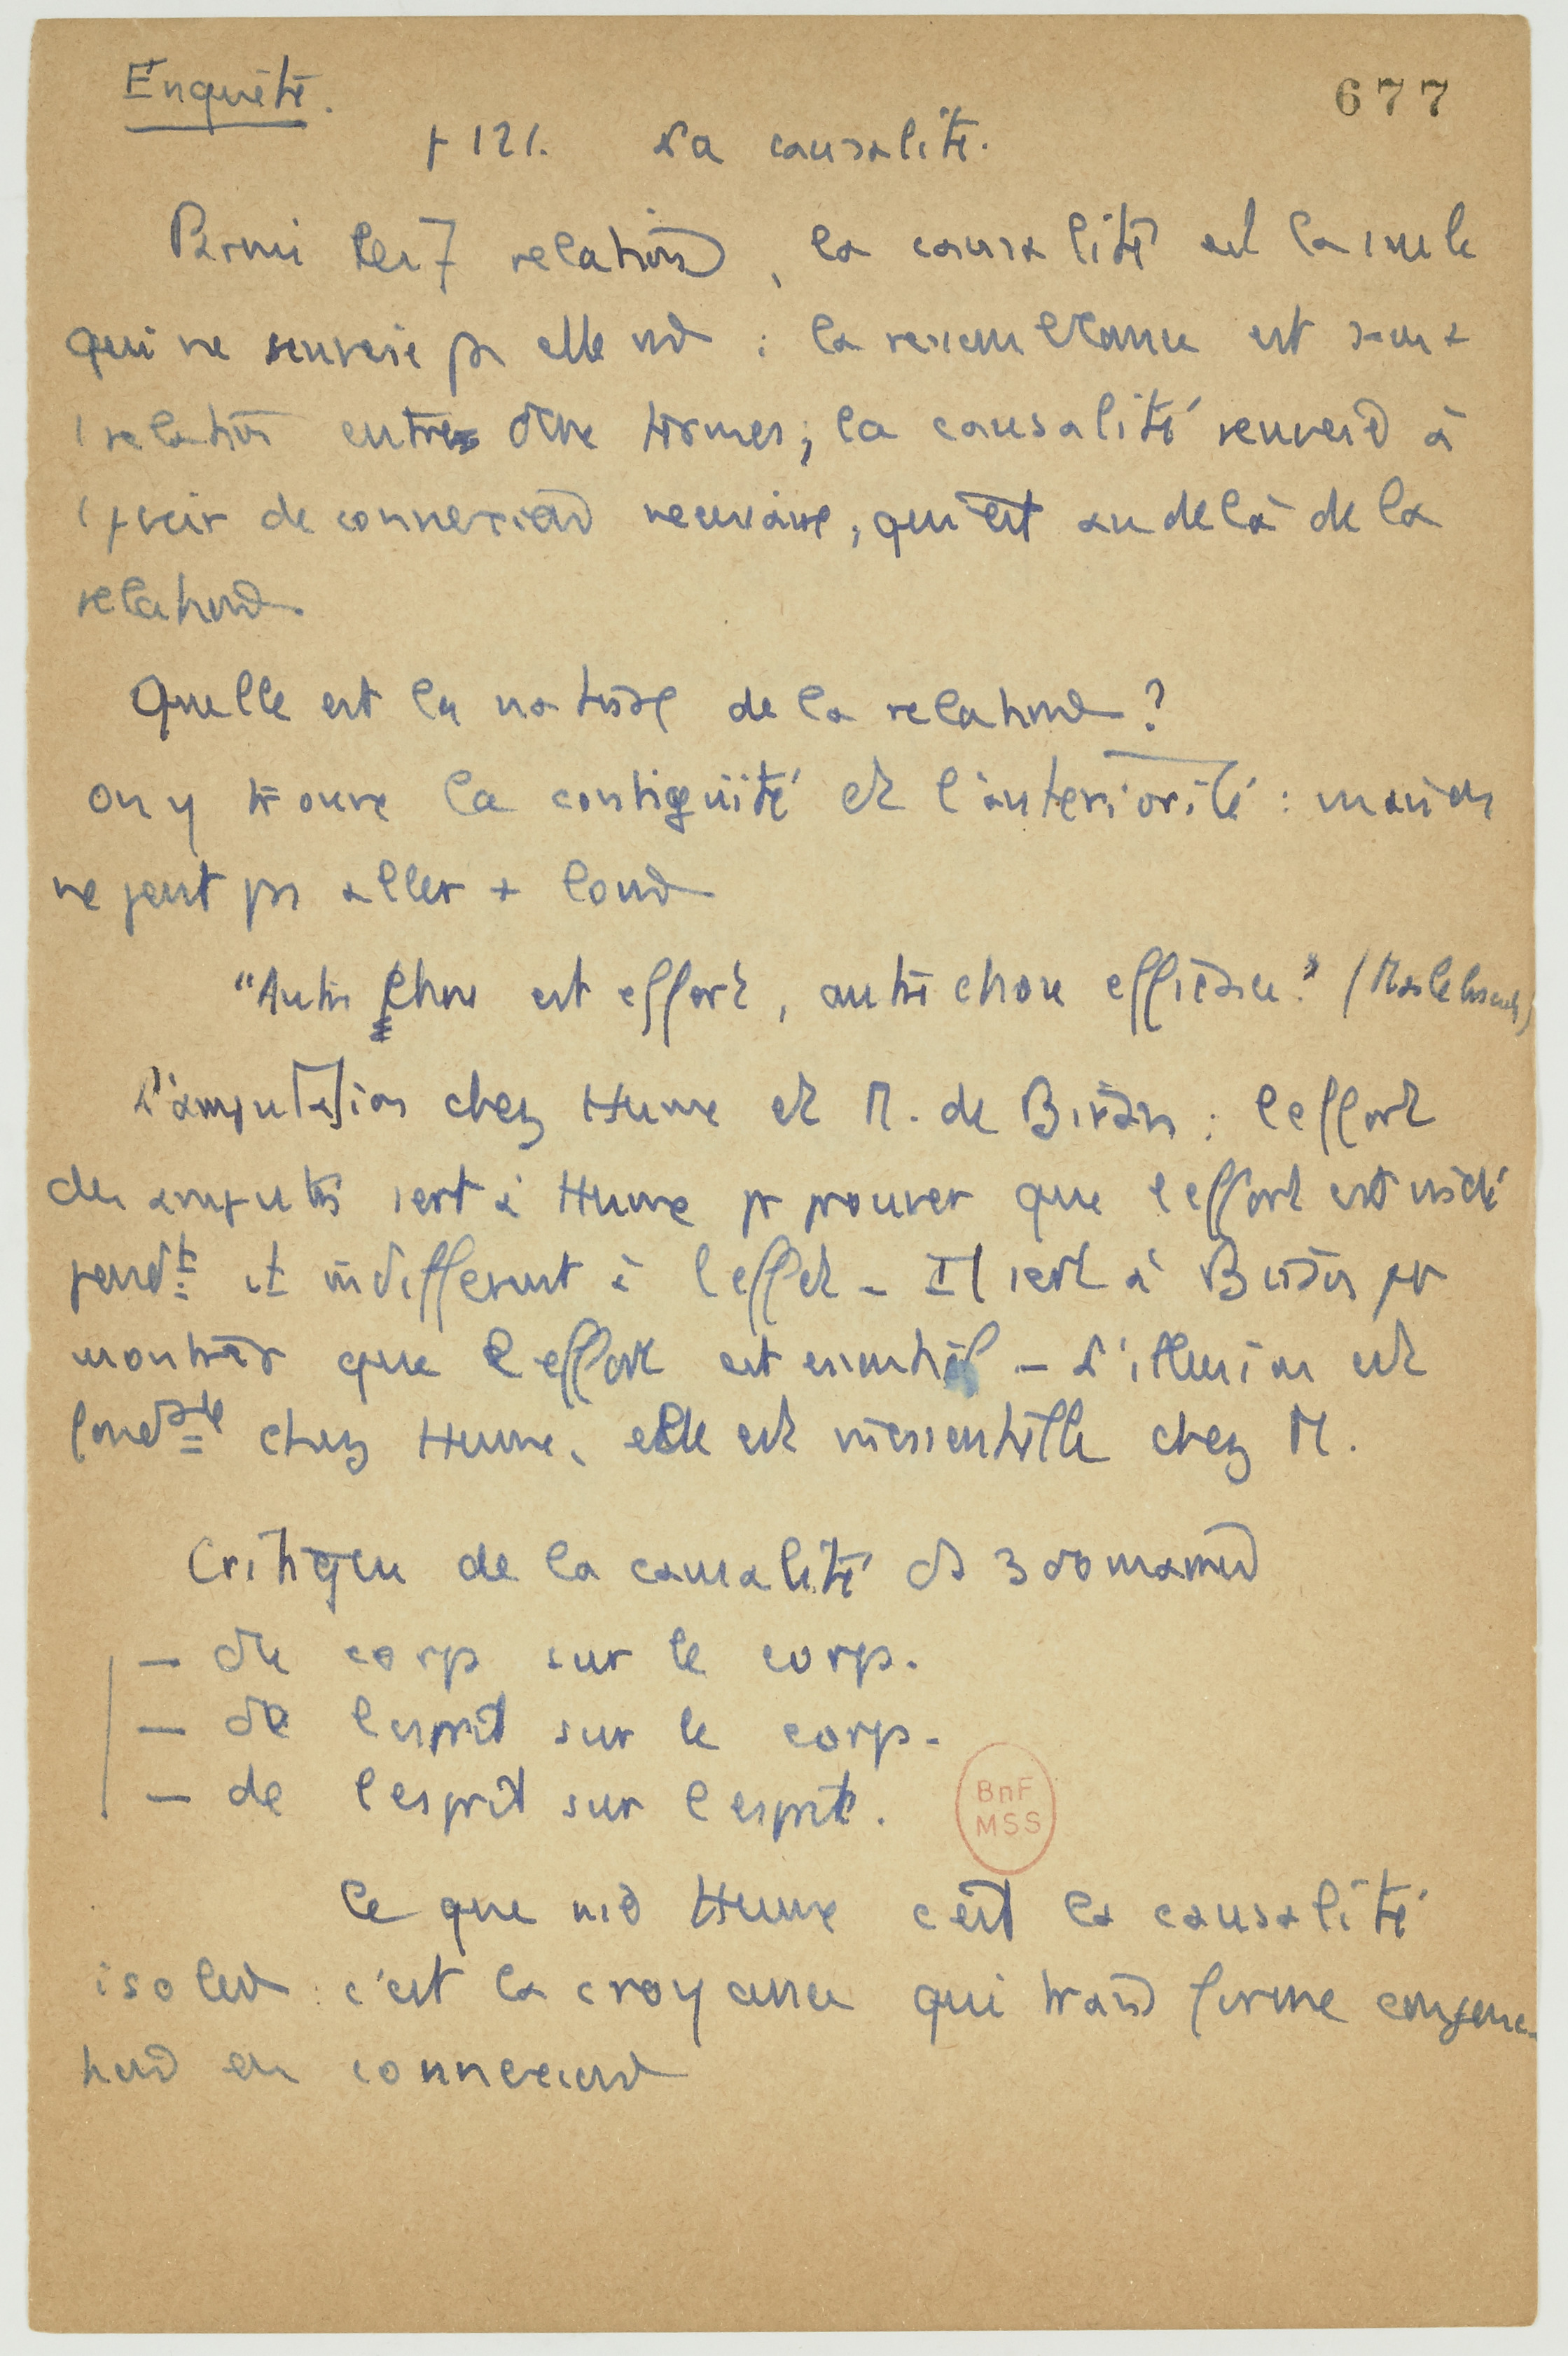 Enquête.
677
p 121. La causalité.
Parmi les 7 relations, la causalité est la seule
qui ne renvoie pas à elle : la ressemblance est
1 relation entre deux termes ; la causalité renvoie à
1 pvoir de connexion nécessaire, qui est au delà de la
relation.
Quelle est la nature de la relation ?
On y trouve la contiguïté et l'antériorité : mais on
ne peut pas aller + loin
"Autre chose est effort, autre chose efficace." (Malebranche)
L'amputation chez Hume et M. de Biran : l'effort
des amputés sert à Hume pr prouver que l'effort est indé
pendt et indifférent à l'effet - Il sert à Biran pr
montrer que l'effort est essentiel - L'illusion est
fondtale chez Hume, elle est inessentielle chez M.
Critique de la causalité ds 3 domaines
- du corps sur le corps.
- de l'esprit sur le corps.
- de l'esprit sur l'esprit.
BnF
MSS
Ce que nie Hume c'est la causalité
isolée : c'est la croyance qui transforme conjonc-
tion en connexion